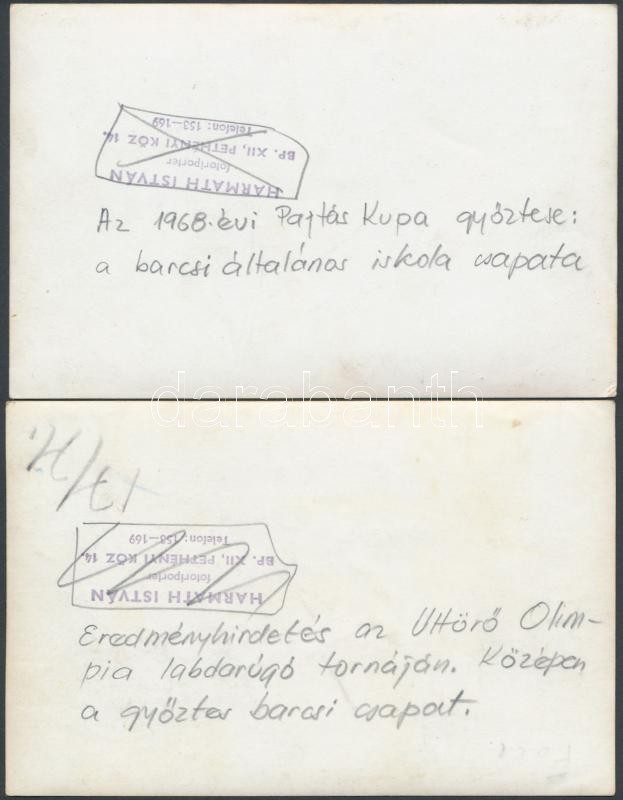 HARMATH ISTVÁN
fotoriporter
BP. XII, PETHÉNYI KÖZ 14.
Telefon: 153—169
Az 1968. évi Pajtás Kupa győztese:
a barcsi általános iskola csapata
darabanth
HARMATH ISTVÁN
fotoriporter
BP. XII, PETHÉNYI KÖZ 14.
Telefon: 153—169
Eredményhirdetés az Úttörő Olim-
pia labdarúgó tornáján. Középen
a győztes barcsi csapat.